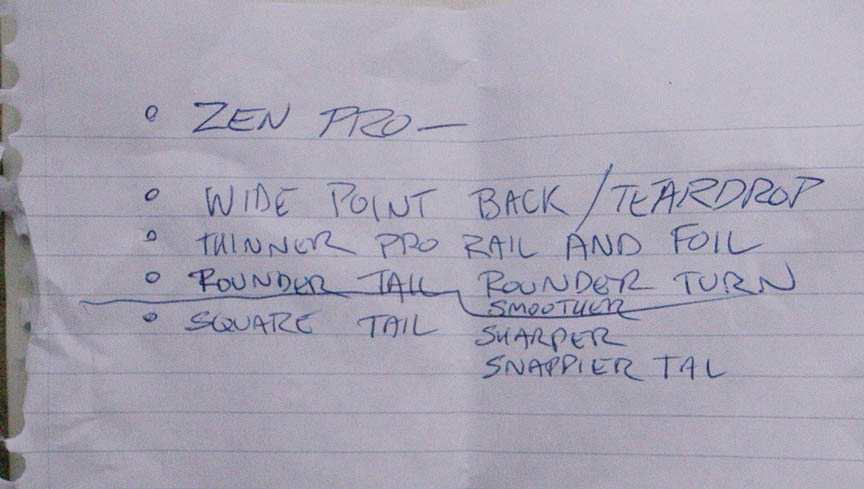 ZEN PRO—
WIDE POINT BACK / TEARDROP
THINNER PRO RAIL AND FOIL
ROUNDER TAIL ROUNDER TURN
SMOOTHER
SQUARE TAIL SHARPER
SNAPPIER TAL